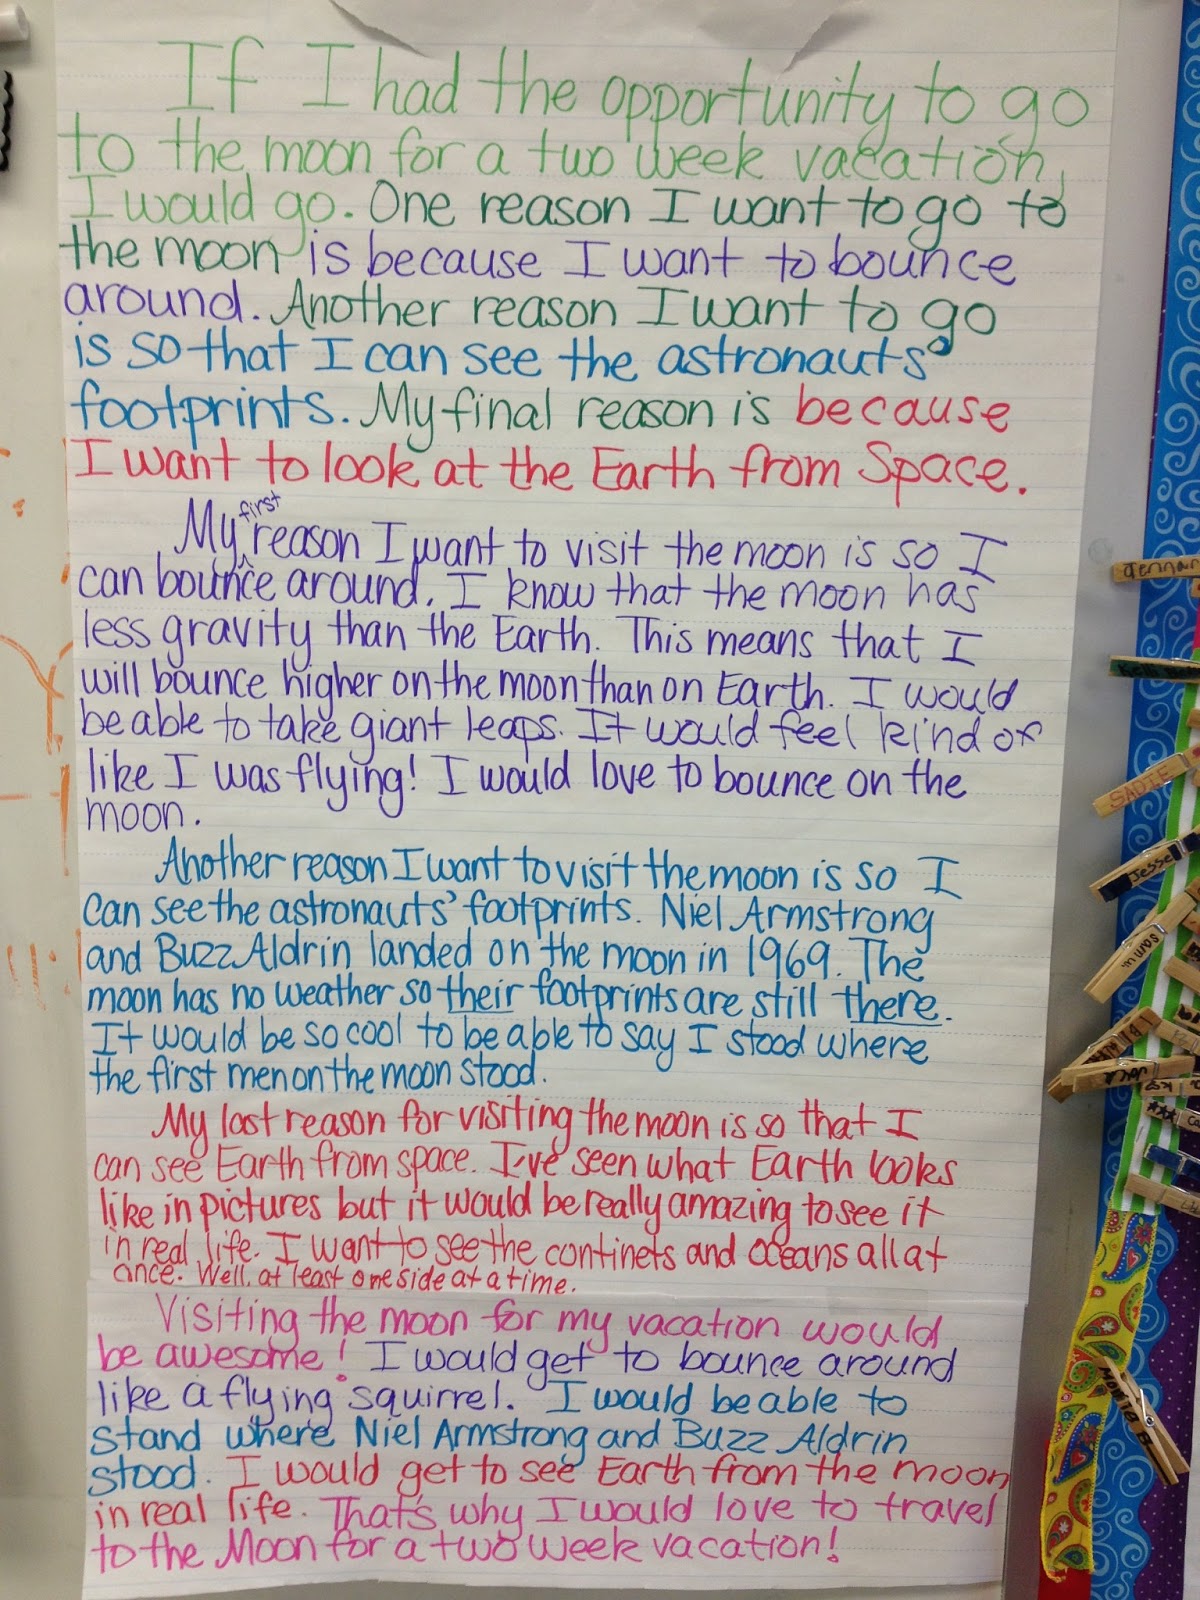 If I had the opportunity to go
to the moon for a two week vacation,
I would go. One reason I want to go to
the moon is because I want to bounce
around. Another reason I want to go
is so that I can see the astronauts'
footprints. My final reason is because
I want to look at the Earth from Space.
My first reason I want to visit the moon is so I
can bounce around. I know that the moon has
less gravity than the Earth. This means that I
will bounce higher on the moon than on Earth. I would
be able to take giant leaps. It would feel kind of
like I was flying! I would love to bounce on the
moon.
Another reason I want to visit the moon is so I
can see the astronauts' footprints. Niel Armstrong
and Buzz Aldrin landed on the moon in 1969. The
moon has no weather so their footprints are still there.
It would be so cool to be able to say I stood where
the first men on the moon stood.
My last reason for visiting the moon is so that I
can see Earth from space. I've seen what Earth looks
like in pictures but it would be really amazing to see it
in real life. I want to see the continets and oceans all at
once. Well, at least one side at a time.
Visiting the moon for my vacation would
be awesome! I would get to bounce around
like a flying squirrel. I would be able to
stand where Niel Armstrong and Buzz Aldrin
stood. I would get to see Earth from the moon
in real life. That's why I would love to travel
to the Moon for a two week vacation!
SADIE
Jesse